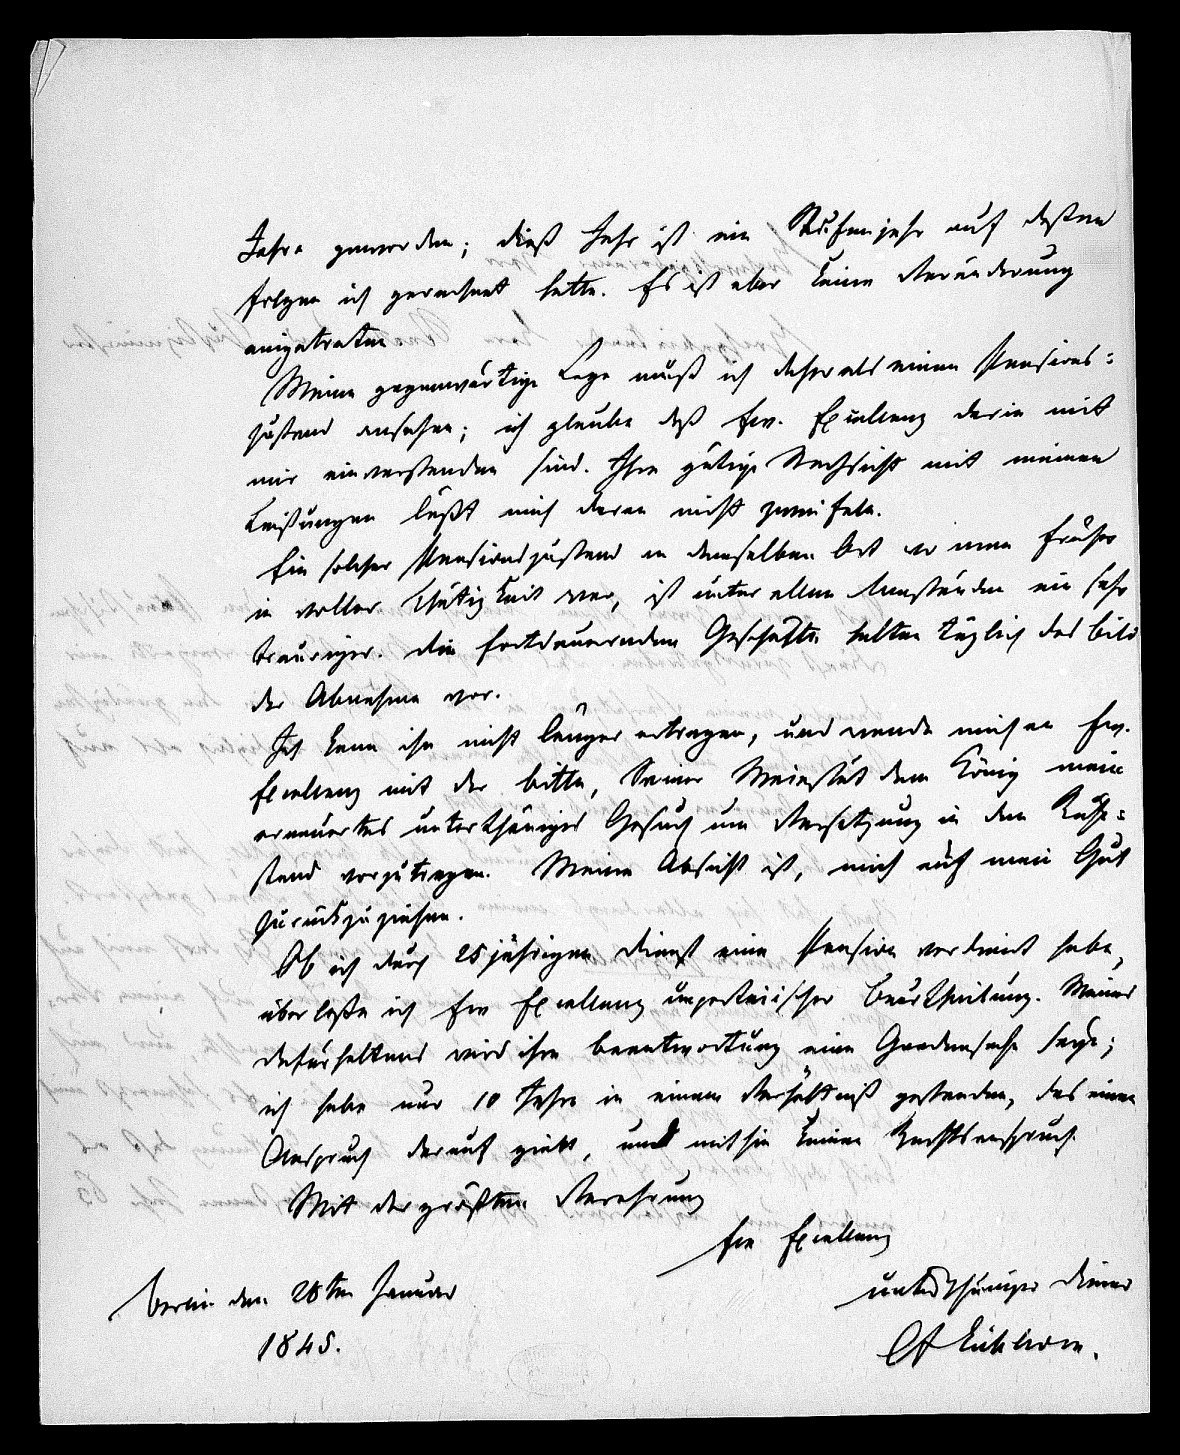 Jahre geworden; dieß Jahr ist ein Stufenjahr auf dessen
Folgen ich gerechnet hatte. Es ist aber keine Veränderung
eingetreten.
Meine gegenwärtige Lage muß ich daher als einen Pensions-
zustand ansehen; ich glaube daß Ew. Excellenz darin mit
mir einverstanden sind. Ihre gütige Nachsicht mit meinen
Leistungen läßt mich daran nicht zweifeln.
Ein solcher Pensionszustand an demselben Ort wo man früher
in voller Thätigkeit war, ist unter allen Umständen ein sehr
trauriger. Die fortdauernden Geschäfte halten täglich das Bild
der Abnahme vor.
Ich kann ihn nicht länger ertragen, und wende mich an Ew.
Excellenz mit der Bitte, Seiner Majestät dem König mein
erneuertes unterthäniges Gesuch um Versetzung in den Ruhe-
stand vorzutragen. Meine Absicht ist, mich auf mein Gut
zurückzuziehen.
Ob ich durch 25jährigen Dienst eine Pension verdient habe,
überlasse ich Ew Excellenz unparteiischer Beurtheilung. Meines
Dafürhaltens wird ihre Beantwortung eine Gnadensache seyn;
ich habe nur 10 Jahre in einem Verhältniß gestanden, das einen
Anspruch darauf giebt, und mithin keinen Rechtsanspruch.
Mit der größten Verehrung
Ew Excellenz
Berlin den 28ten Januar
unterthäniger Diener
1845.
CF Eichhorn.